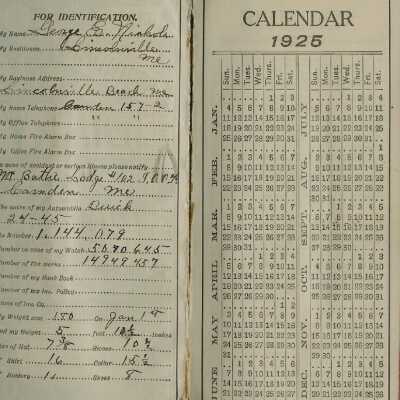 FOR IDENTIFICATION.
My Name George
My Residence Lincolnville
Me
My Business Address
Lincolnville Beach, Me
My Home Telephone Camden 157-2
My Office Telephone " "
My Home Fire Alarm Box
My Office Fire Alarm Box
In case of accident or serious illness please notify
Mt Battie Lodge #102 I.O.O.F.
Camden Me
The make of my Automobile Buick
24-45
Its Number 1.144,079
Number on case of my Watch 5070645
Number of the works 14949457
Number of my Bank Book
Number of my Ins. Policy
Name of Ins. Co.
My Weight was 150 On Jan 1st
and my Height 5 feet 10½ inches
Size of Hat 7 3/8 Gloves 10½
Shirt 16 Collar 15½
Hosiery 11 Shoes 8
CALENDAR
1925
Sun. Mon. Tues. Wed. Thur. Fri. Sat.
Sun. Mon. Tues. Wed. Thur. Fri. Sat.
JAN.
1 2 3
4 5 6 7 8 9 10
11 12 13 14 15 16 17
18 19 20 21 22 23 24
25 26 27 28 29 30 31
FEB.
1 2 3 4 5 6 7
8 9 10 11 12 13 14
15 16 17 18 19 20 21
22 23 24 25 26 27 28
MAR.
1 2 3 4 5 6 7
8 9 10 11 12 13 14
15 16 17 18 19 20 21
22 23 24 25 26 27 28
29 30 31
APRIL
1 2 3 4
5 6 7 8 9 10 11
12 13 14 15 16 17 18
19 20 21 22 23 24 25
26 27 28 29 30
MAY
1 2
3 4 5 6 7 8 9
10 11 12 13 14 15 16
17 18 19 20 21 22 23
24 25 26 27 28 29 30
31
JUNE
1 2 3 4 5 6
7 8 9 10 11 12 13
14 15 16 17 18 19 20
21 22 23 24 25 26 27
JULY
1 2 3 4
5 6 7 8 9 10 11
12 13 14 15 16 17 18
19 20 21 22 23 24 25
26 27 28 29 30 31
AUG.
1
2 3 4 5 6 7 8
9 10 11 12 13 14 15
16 17 18 19 20 21 22
23 24 25 26 27 28 29
30 31
SEPT.
1 2 3 4 5
6 7 8 9 10 11 12
13 14 15 16 17 18 19
20 21 22 23 24 25 26
27 28 29 30
OCT.
1 2 3
4 5 6 7 8 9 10
11 12 13 14 15 16 17
18 19 20 21 22 23 24
25 26 27 28 29 30 31
NOV.
1 2 3 4 5 6 7
8 9 10 11 12 13 14
15 16 17 18 19 20 21
22 23 24 25 26 27 28
29 30
DEC.
1 2 3 4 5
6 7 8 9 10 11 12
13 14 15 16 17 18 19
20 21 22 23 24 25 26